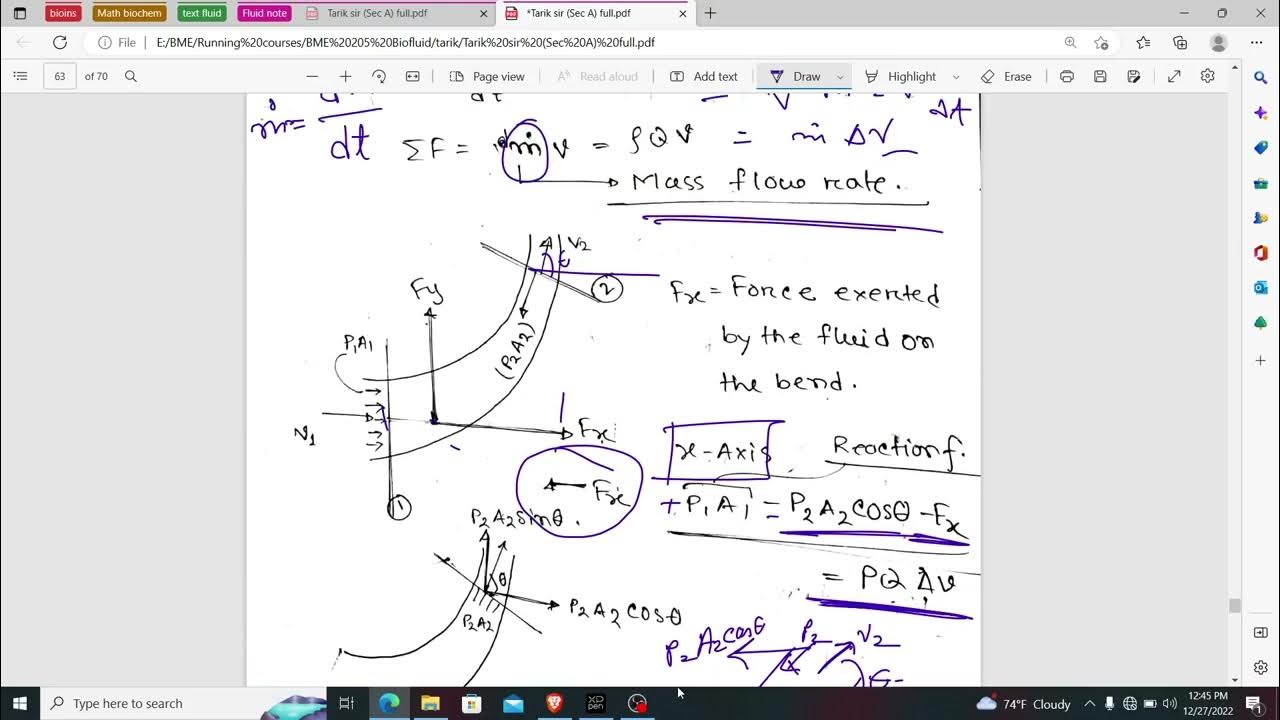 bioins
Math biochem
text fluid
Fluid note
Tarik sir (Sec A) full.pdf
*Tarik sir (Sec A) full.pdf
File
E:/BME/Running%20courses/BME%20205%20Biofluid/tarik/Tarik%20sir%20(Sec%20A)%20full.pdf
63 of 70
Page view
Read aloud
Add text
Draw
Highlight
Erase
ṁ =
dt
dt
ΔA
ΣF = ṁ v = ρQv = ṁ ΔV
Mass flow rate.
V2
2
Fy
P1A1
(P2A2)
Fx = Force exerted
by the fluid on
the bend.
V1
Fx
x-Axis
Reaction f.
Fx
1
+ P1A1 = P2A2cosθ - Fx
P2A2sinθ.
= PQ Δv
θ
P2A2cosθ
P2A2
P2A2cosθ
P2
V2
Type here to search
XD PEN
74°F Cloudy
12:45 PM
12/27/2022
1